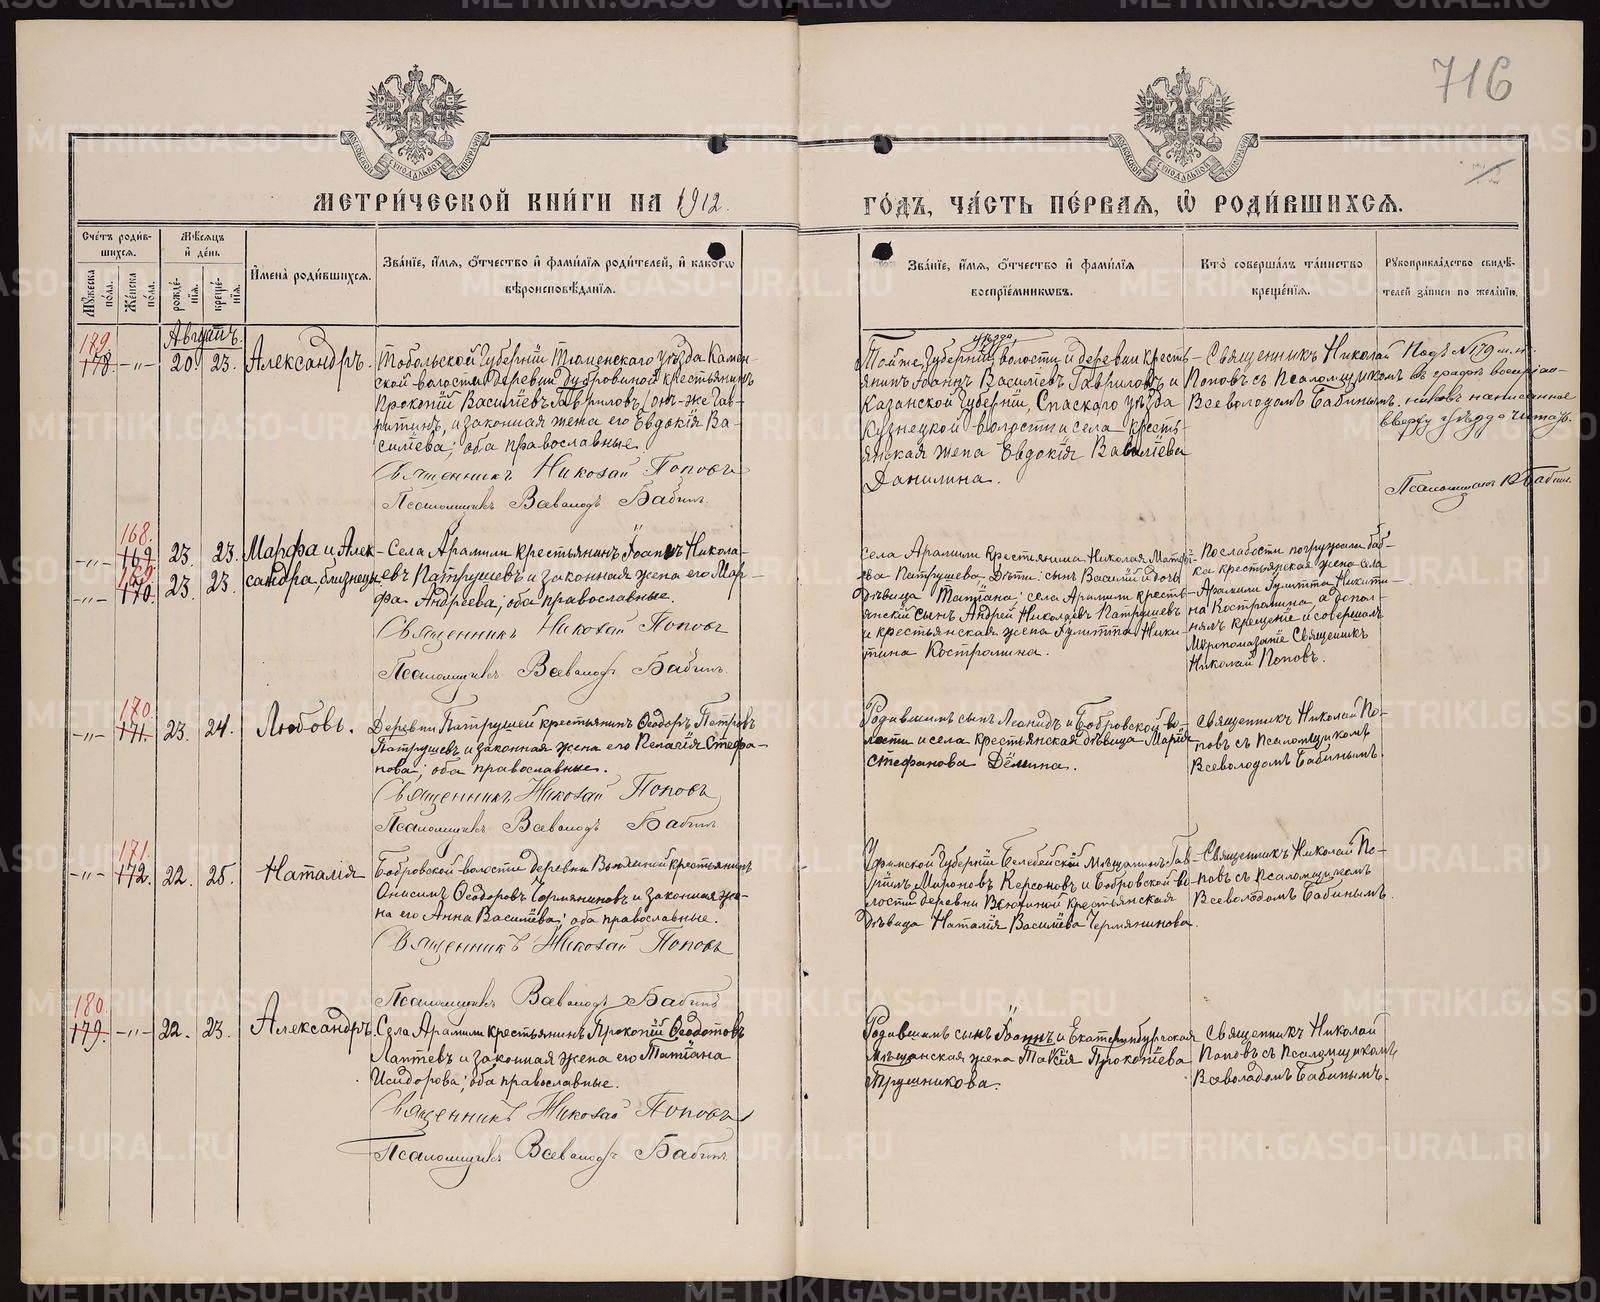 716
МЕТРИ́ЧЕСКОЙ КНИ́ГИ НА 1912.
ГО́ДЪ, ЧА́СТЬ ПЕ́РВАЯ, Ѿ РОДИ́ВШИХСЯ.
Сче́тъ роди́вшихся.
Мѣ́сяцъ и де́нь
Мꙋ́жеска пола.
Же́нска пола.
рожде́нїя.
креще́нїя.
И҆мена̀ роди́вшихся.
Зва́нїе, и҆́мя, ѻ҆́тчество и҆ фами́лїя роди́телей, и҆ какогѡ
вѣроисповѣ́данїя.
Зва́нїе, и҆́мя, ѻ҆́тчество и҆ фами́лїя
воспрїе́мникѡвъ.
Кто̀ соверша́лъ та́инство
креще́нїя.
Рꙋкоприкла́дство свидѣ́-
телей за́писи по жела́нїю.
Августъ.
179.
178. -„- 20. 23. Александръ.
Тобольской Губернiи Тюменскаго уѣзда Камен-
ской волости деревни Дубровиной крестьянинъ
Прокопiй Василiевъ Гавриловъ, онъ-же Гав-
ритинъ, и законная жена его Евдокiя Ва-
силiева; оба православные.
Священникъ Николай Поповъ
Псаломщикъ Всеволодъ Бабинъ.
уѣзда,
Той же Губернiи, волости и деревни кресть-
янинъ Іоаннъ Василiевъ Гавриловъ и
Казанской Губернiи, Спаскаго уѣзда
Кузнецкой волости и села кресть-
янская жена Евдокiя Василiева
Данилина.
Священникъ Николай
Поповъ съ Псаломщикомъ
Всеволодомъ Бабинымъ.
Подъ №179 м.п.
въ графѣ воспрiем-
никовъ написанное
вверху „уѣзда“ читать.
Псаломщикъ В Бабинъ.
168.
-„- 169 23. 23. Марфа и Алек-
169.
-„- 170. 23 23 сандра, близнецы
Села Арамили крестьянинъ Іоаннъ Никола-
евъ Патрушевъ и законная жена его Мар-
фа Андреева; оба православные.
Священникъ Николай Поповъ
Псаломщикъ Всеволодъ Бабинъ.
Села Арамили Крестьянина Николая Матфе-
ева Патрушева дѣти: сынъ Василiй и дочь
дѣвица Татiана; села Арамили кресть-
янскiй сынъ Андрей Николаевъ Патрушевъ
и крестьянская жена Iулитта Ники-
тина Костромина.
По слабости погружала баб-
ка крестьянская жена села
Арамили Iулитта Никити-
на Костромина, а допол-
нялъ крещенiе и совершалъ
Мѵропомазанiе Священникъ
Николай Поповъ.
170.
-„- 171. 23. 24. Любовь.
Деревни Патрушей крестьянинъ Ѳеодоръ Петровъ
Патрушевъ и законная жена его Пелагiя Стефа-
нова; оба православные.
Священникъ Николай Поповъ
Псаломщикъ Всеволодъ Бабинъ.
Родившимъ сынъ Леонидъ и Бобровской во-
лости и села крестьянская дѣвица Марiя
Стефанова Дёмина.
Священникъ Николай По-
повъ съ Псаломщикомъ
Всеволодомъ Бабинымъ.
171.
-„- 172. 22. 25. Наталiя
Бобровской волости деревни Вьюхиной крестьянинъ
Онисимъ Ѳеодоровъ Чермяниновъ и законная же-
на его Анна Василiева; оба православные.
Священникъ Николай Поповъ
Псаломщикъ Всеволодъ Бабинъ
Уфимской Губернiи Белебейскiй мѣщанинъ Гав-
рiилъ Мироновъ Керсоновъ и Бобровской во-
лости деревни Вьюхиной крестьянская
дѣвица Наталiя Василiева Чермянинова.
Священникъ Николай По-
повъ съ Псаломщикомъ
Всеволодомъ Бабинымъ.
180.
179. -„- 22. 23. Александръ.
Села Арамили крестьянинъ Прокопiй Ѳеодотовъ
Лаптевъ и законная жена его Татiана
Исидорова; оба православные.
Священникъ Николай Поповъ
Псаломщикъ Всеволодъ Бабинъ
Родившимъ сынъ Іоаннъ и Екатеринбургская
Мѣщанская жена Таисiя Прокопiева
Трушникова.
Священникъ Николай
Поповъ съ Псаломщикомъ
Всеволодомъ Бабинымъ.
METRIKI.GASO-URAL.RU